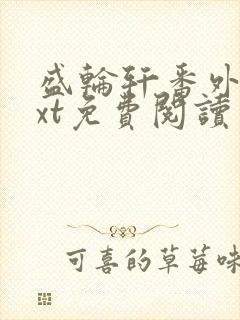 盛輪軒番外
xt免費閱讀
可喜的草莓味